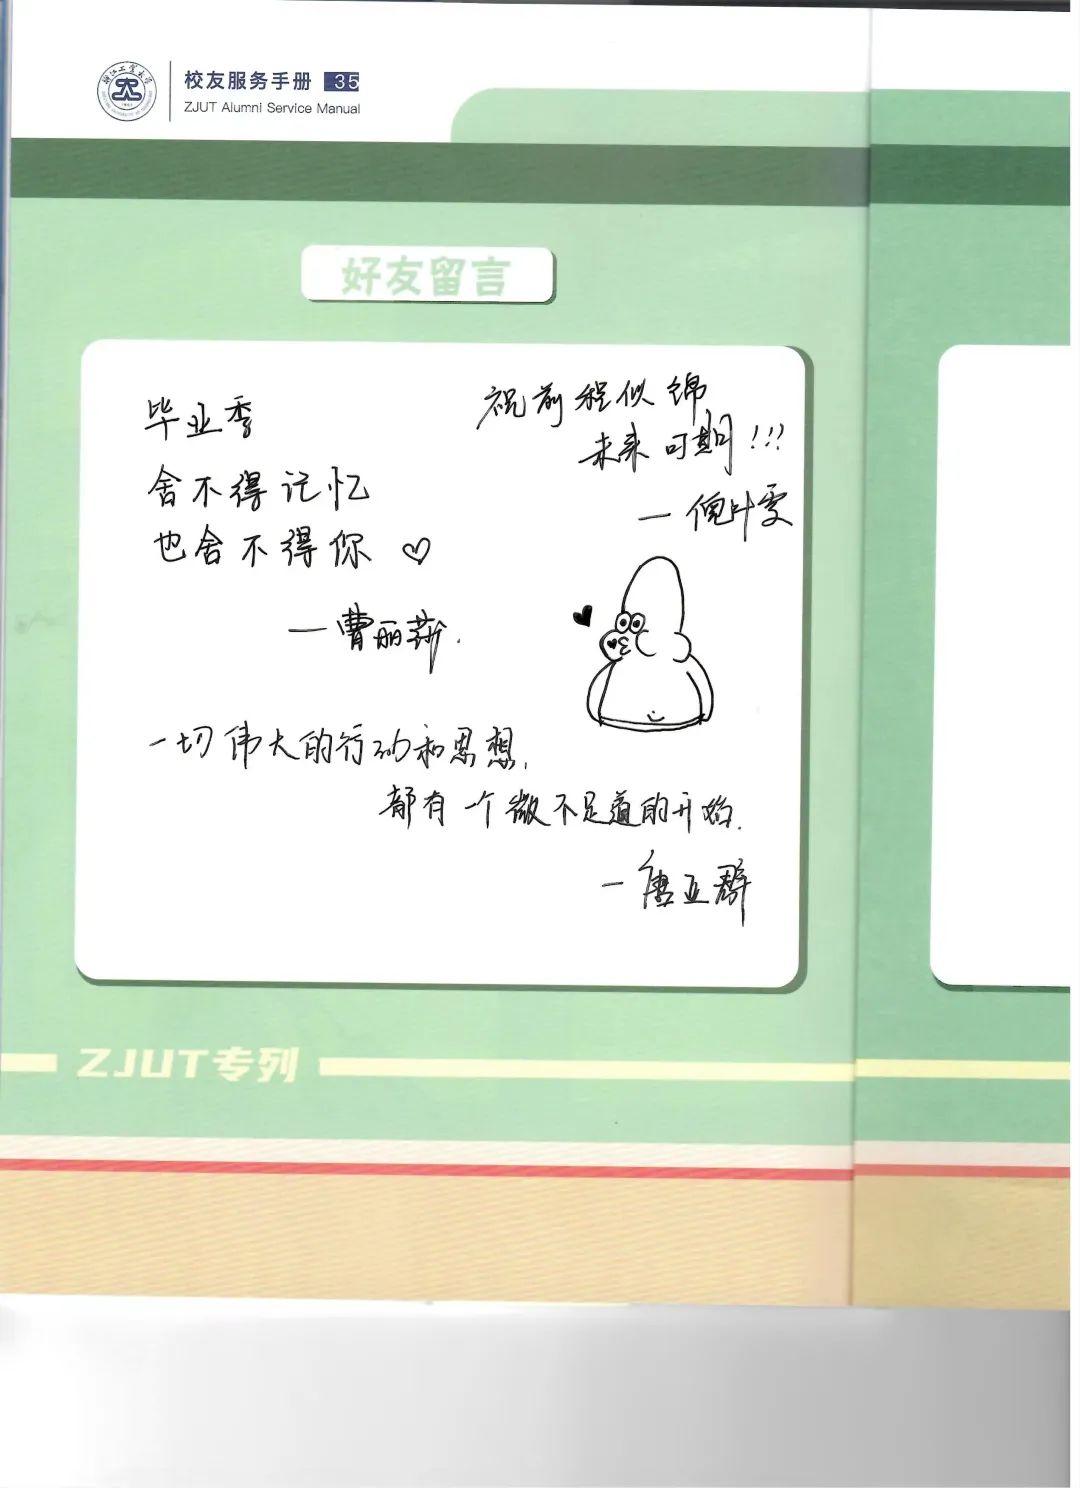 校友服务手册 35
ZJUT Alumni Service Manual
好友留言
毕业季
舍不得记忆
也舍不得你
一曹丽莎.
祝前程似锦
未来可期!!!
一倪叶雯
一切伟大的行动和思想,
都有一个微不足道的开始.
一唐亚群
ZJUT专列